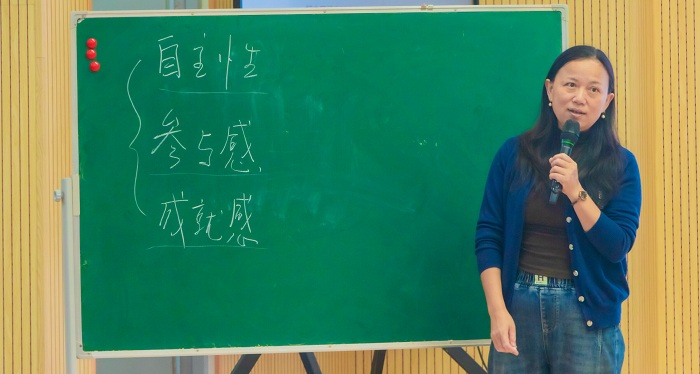 自主性
参与感
成就感